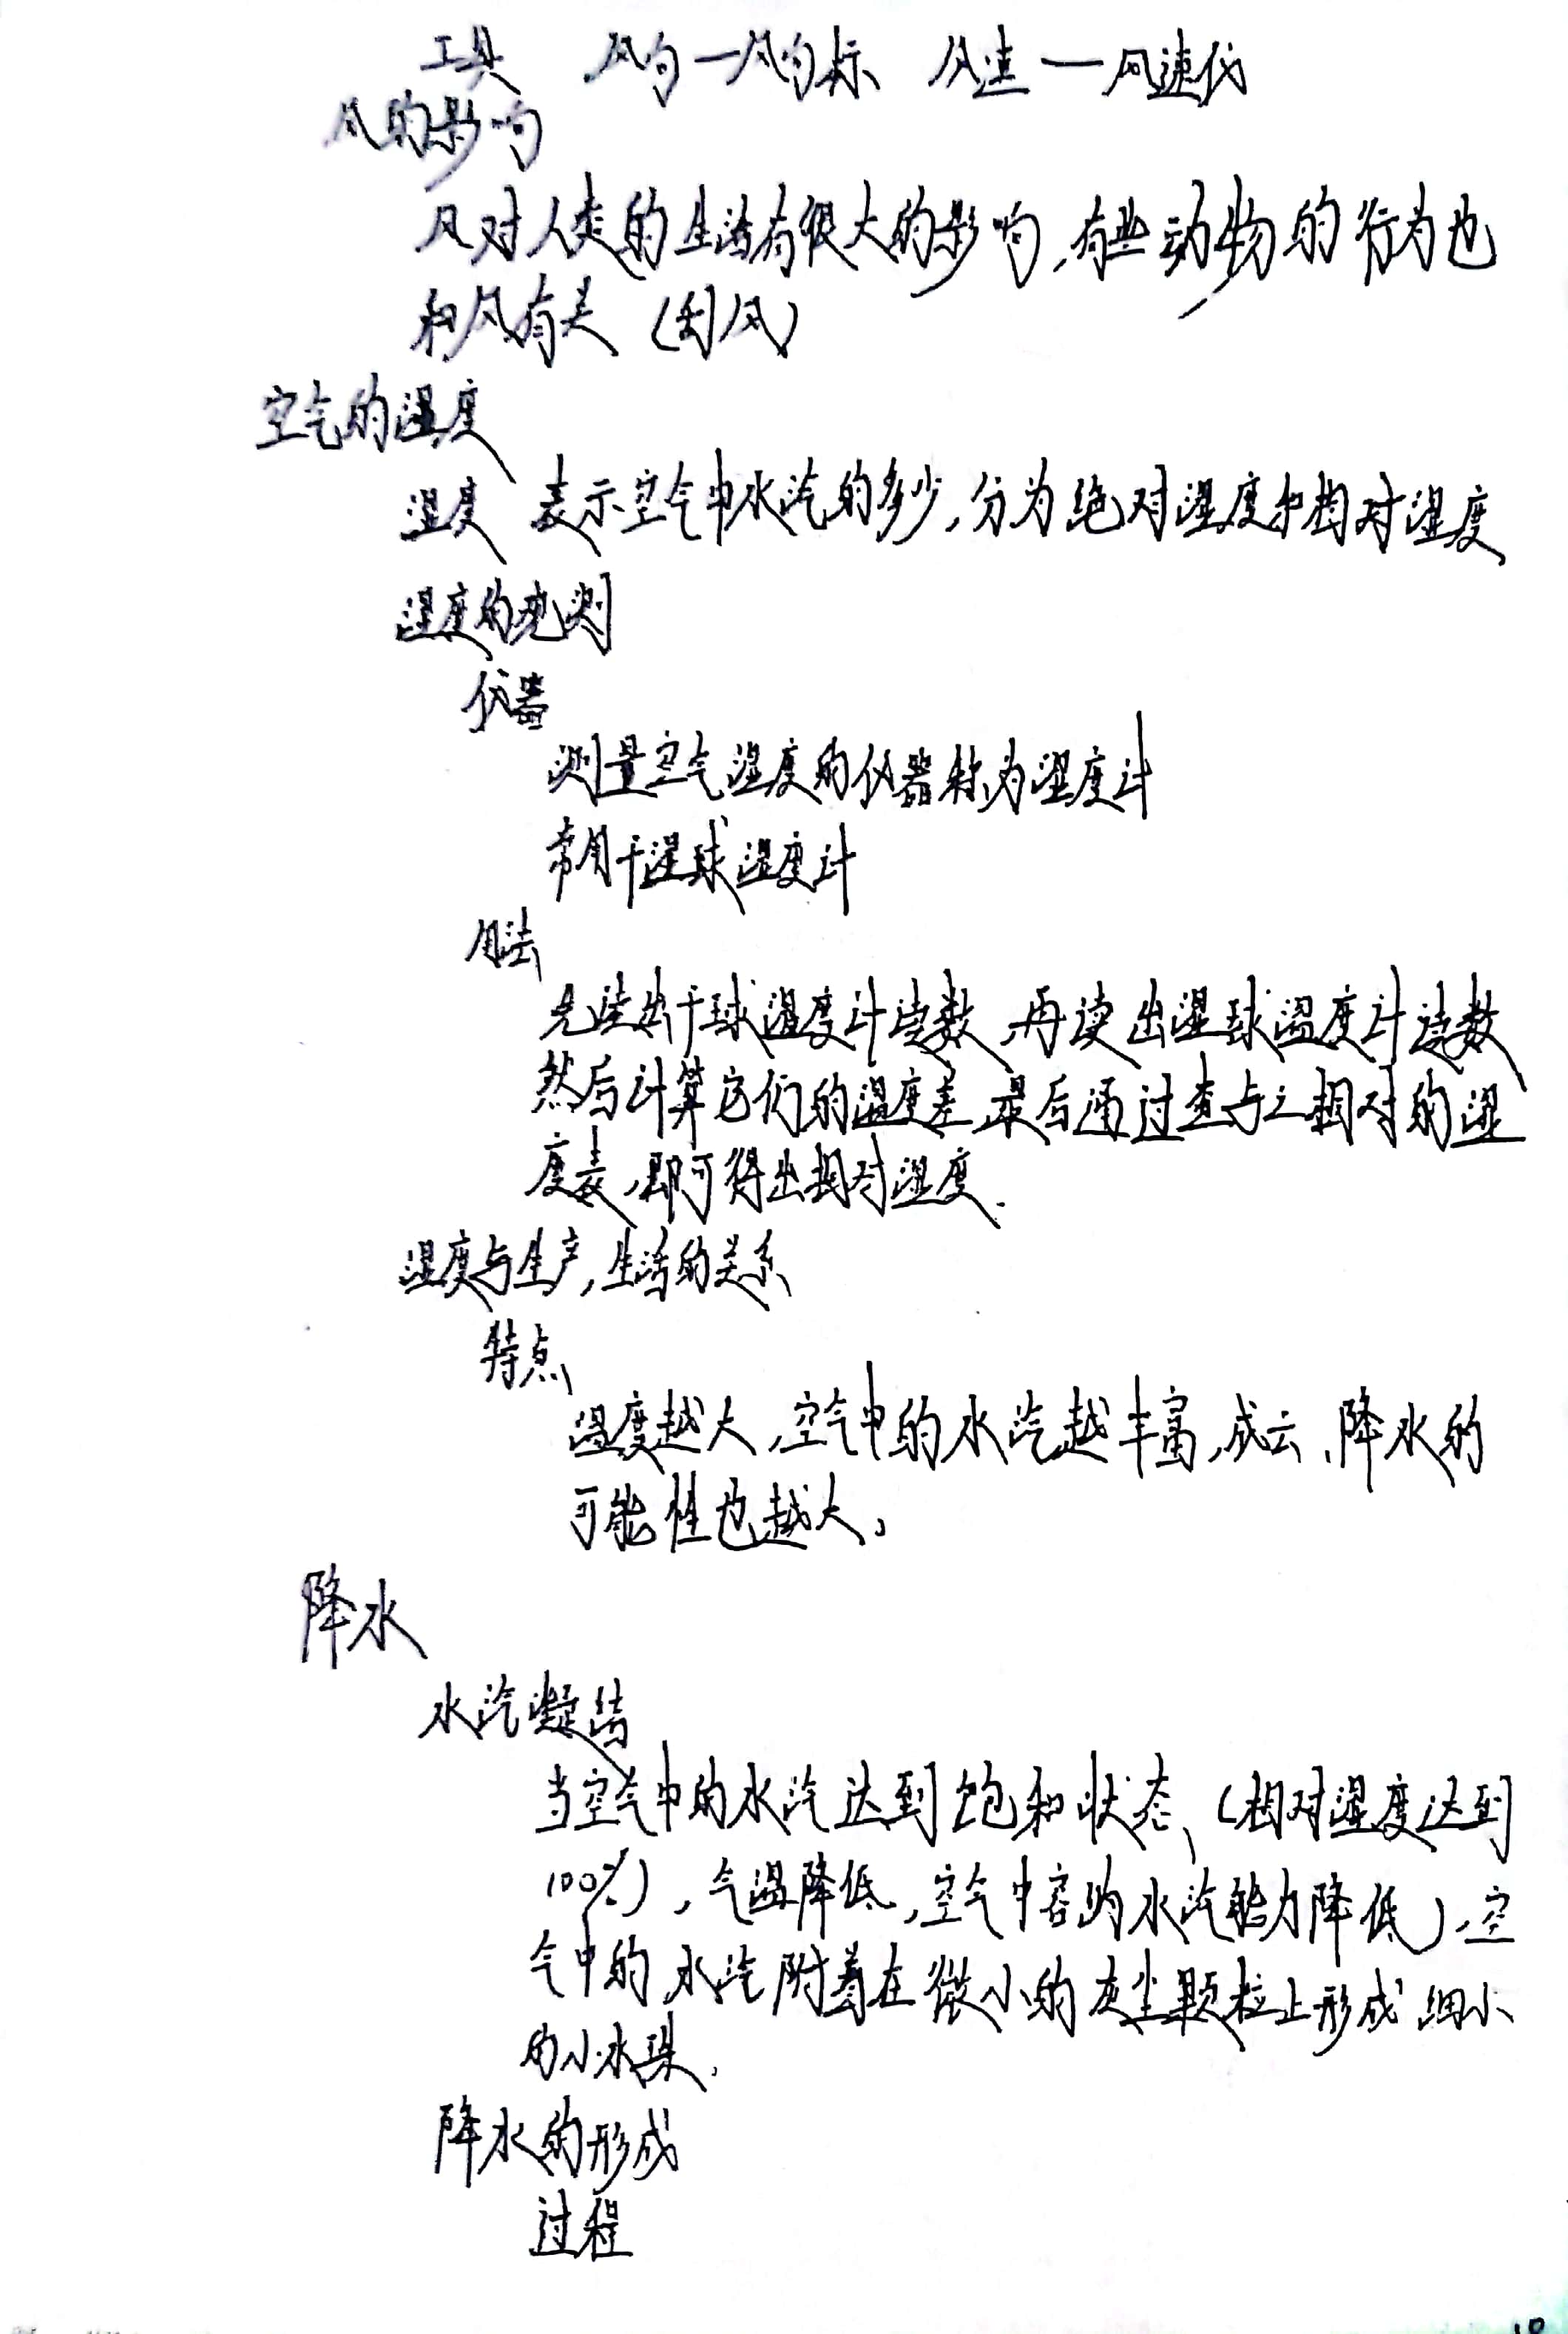 工具 风向—风向标 风速—风速仪
风的影响
风对人类的生活有很大的影响,有些动物的行为也
和风有关 (刮风)
空气的湿度
湿度 表示空气中水汽的多少,分为绝对湿度和相对湿度
湿度的观测
仪器
测量空气湿度的仪器称为湿度计
常用干湿球湿度计
用法
先读出干球温度计读数,再读出湿球温度计读数
然后计算它们的温度差,最后通过查与之相对的湿
度表,即可得出相对湿度.
湿度与生产,生活的关系
特点
湿度越大,空气中的水汽越丰富,成云、降水的
可能性也越大。
降水
水汽凝结
当空气中的水汽达到饱和状态(相对湿度达到
100%),气温降低,空气中容纳水汽能力降低),空
气中的水汽附着在微小的灰尘颗粒上形成细小
的小水珠.
降水的形成
过程